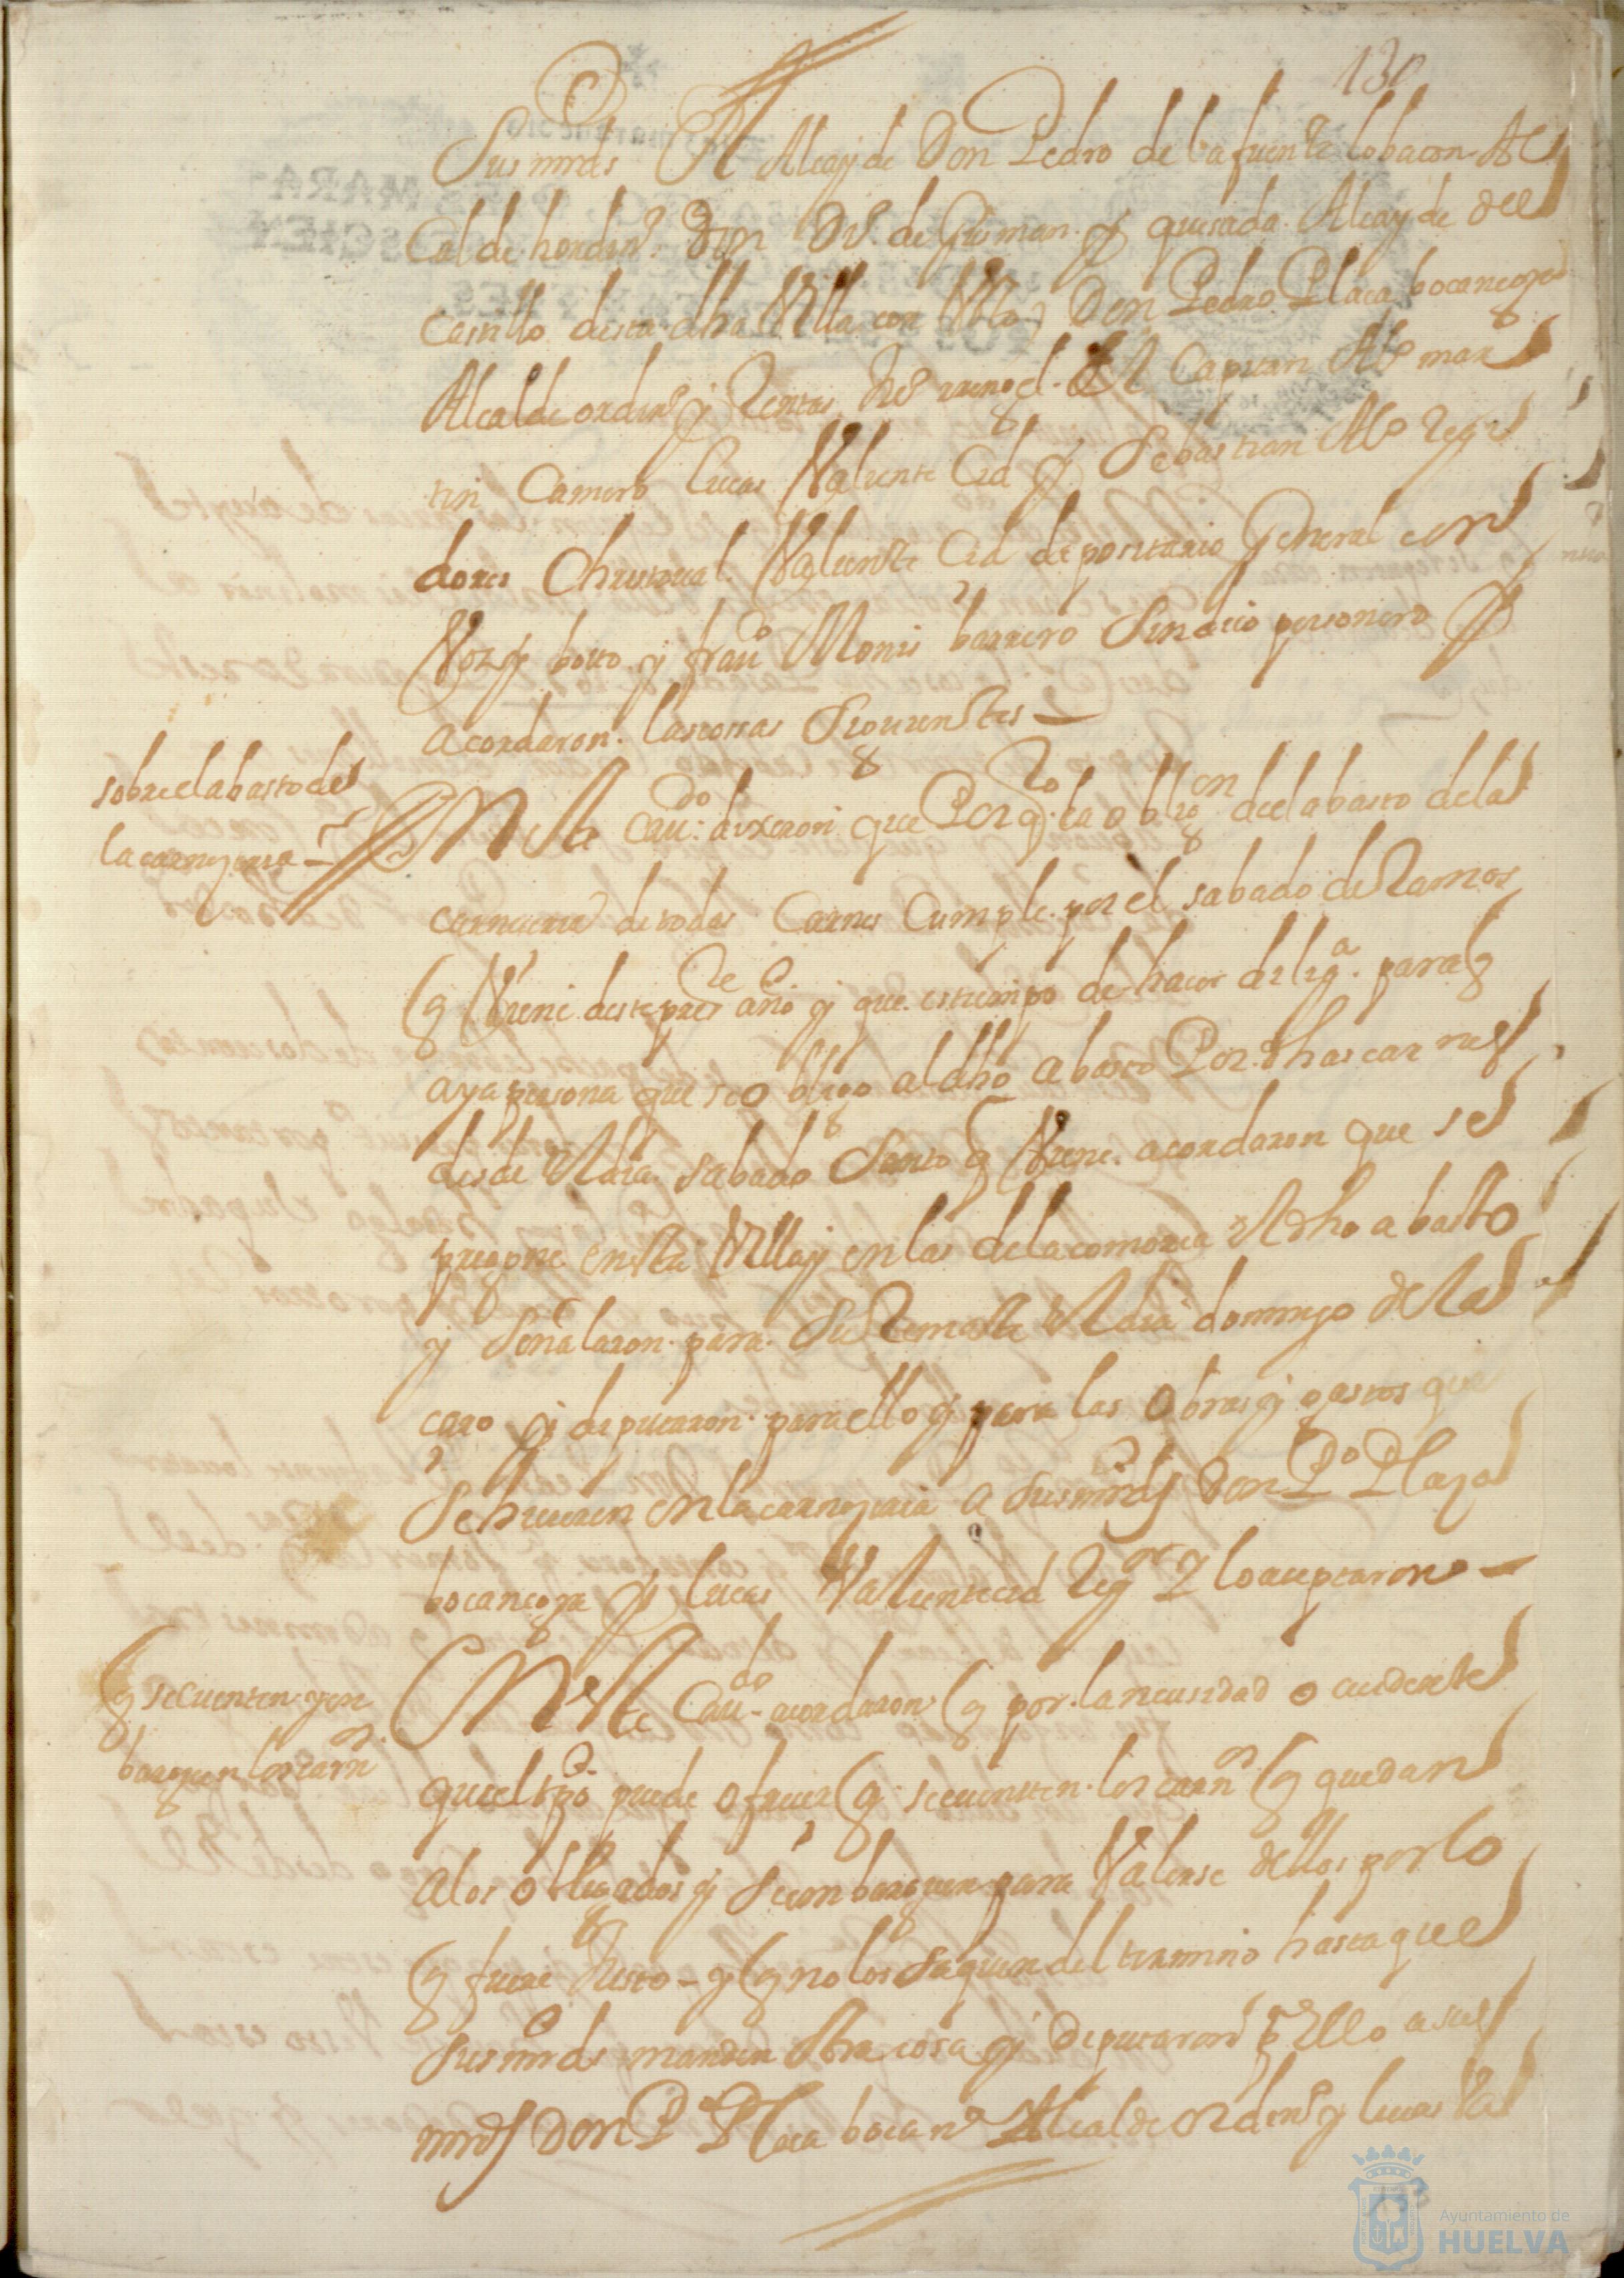 130
Susmrds El Alcayde Don Pedro de la fuente lobaton Al
Calde hordinº Don Dº. de Gusman y quesada Alcayde del
castillo desta dha Villa con Vº Don Pedro Plaça bocanegra
Alcalde ordinº y El Capitan Alº mar
tin Camero lucas Valiente Cid y Sebastian Alº Regi
dores Christoual Valiente Cid depositario General con
Voz y botto y franº Monis barrero Sindico personero y
acordaron las cosas siguientes —
sobre el abasto de
la carnyseria —
En Este Caudo dixeron que Por qto la obligon del abasto de la
carniceria de todas Carnes Cumple por el sabado de Ramos
q Viene deste preste año y que es tiempo de hacer diliga para q
aya persona que se obligo al dho abasto Por dhas carnes
desde El dia sabado Santo q Viene acordaron que se
pregone en esta Villa y en las de la comarca El dho abasto
y Señalaron para Su Remate El dia domingo de La
caro y deputaron para ello y para las Obras y gastos que
Se hicieren en la carnyseria a susmrds Don Pº Plaza
bocanegra y lucas Valiente cid Regor y lo aceptaron —
q se cuenten y en
barguen los carnos
En Este Caudo acordaron q por la necesidad o accidente
que el tpo puede ofrecer q se cuenten los carnos q quedan
a los obligados y Se enbarguen para Valerse dellos por lo
q fuere Justo — y q no los saquen del termino hasta que
susmrds manden Otra cosa y Deputaron pª Ello a sus
mrds Don Pº Plaça bocanª Alcalde ordinº y lucas Va
Ayuntamiento de
HUELVA